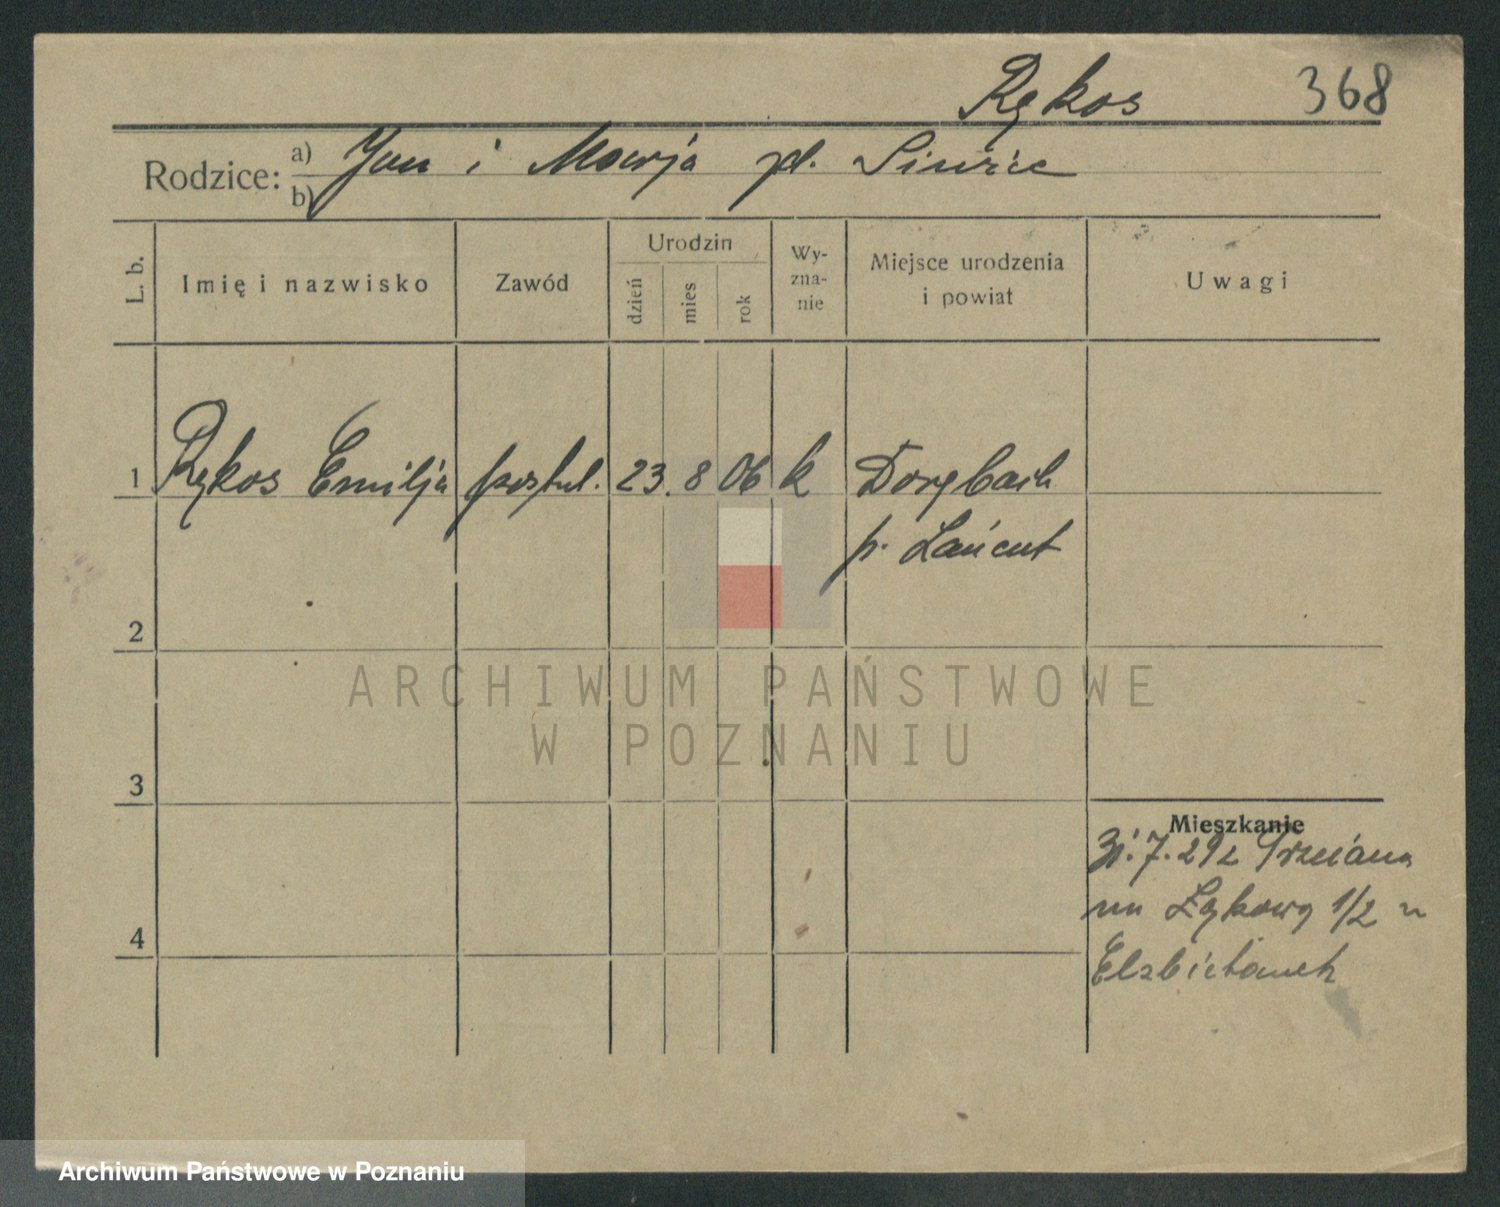 Rękos 368
Rodzice: a) Jan i Marja zd.
b)
L. b. Imię i nazwisko Zawód Urodzin dzień mies rok Wy-zna-nie Miejsce urodzenia i powiat Uwagi
1 Rękos Emilja postul. 23. 8 06 k Dornbach
p. Łańcut
2
3
4
Mieszkanie
7. 29 z
na Łąkową 1/2 u
Elżbietanek
ARCHIWUM PAŃSTWOWE
W POZNANIU
Archiwum Państwowe w Poznaniu